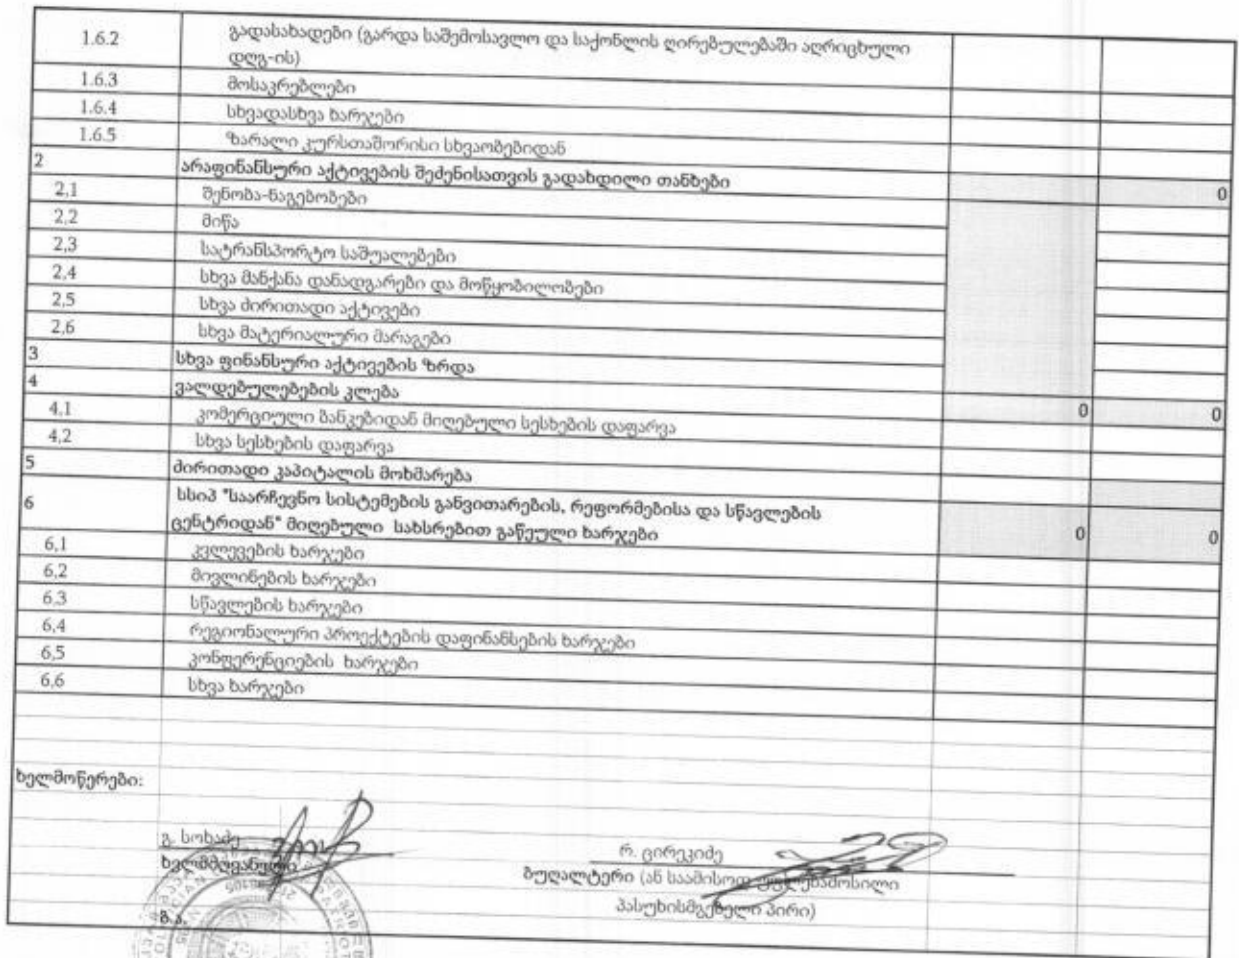 1.6.2 გადასახადები (გარდა საშემოსავლო და საქონლის ღირებულებაში აღრიცხული
დღგ-ის)
1.6.3 მოსაკრებლები
1.6.4 სხვადასხვა ხარჯები
1.6.5 ზარალი კურსთაშორისი სხვაობებიდან
2 არაფინანსური აქტივების შეძენისათვის გადახდილი თანხები 0
2,1 შენობა-ნაგებობები
2,2 მიწა
2,3 სატრანსპორტო საშუალებები
2,4 სხვა მანქანა დანადგარები და მოწყობილობები
2,5 სხვა ძირითადი აქტივები
2,6 სხვა მატერიალური მარაგები
3 სხვა ფინანსური აქტივების ზრდა
4 ვალდებულებების კლება 0 0
4,1 კომერციული ბანკებიდან მიღებული სესხების დაფარვა
4,2 სხვა სესხების დაფარვა
5 ძირითადი კაპიტალის მოხმარება
6 სსიპ "საარჩევნო სისტემების განვითარების, რეფორმებისა და სწავლების
ცენტრიდან" მიღებული სახსრებით გაწეული ხარჯები 0 0
6,1 კვლევების ხარჯები
6,2 მივლინების ხარჯები
6,3 სწავლების ხარჯები
6,4 რეგიონალური პროექტების დაფინანსების ხარჯები
6,5 კონფერენციების ხარჯები
6,6 სხვა ხარჯები
ხელმოწერები:
გ. სოხაძე
რ. ცირეკიძე
ხელმძღვანელი
ბუღალტერი (ან საამისოდ უფლებამოსილი
პასუხისმგებელი პირი)
ბ.ა.